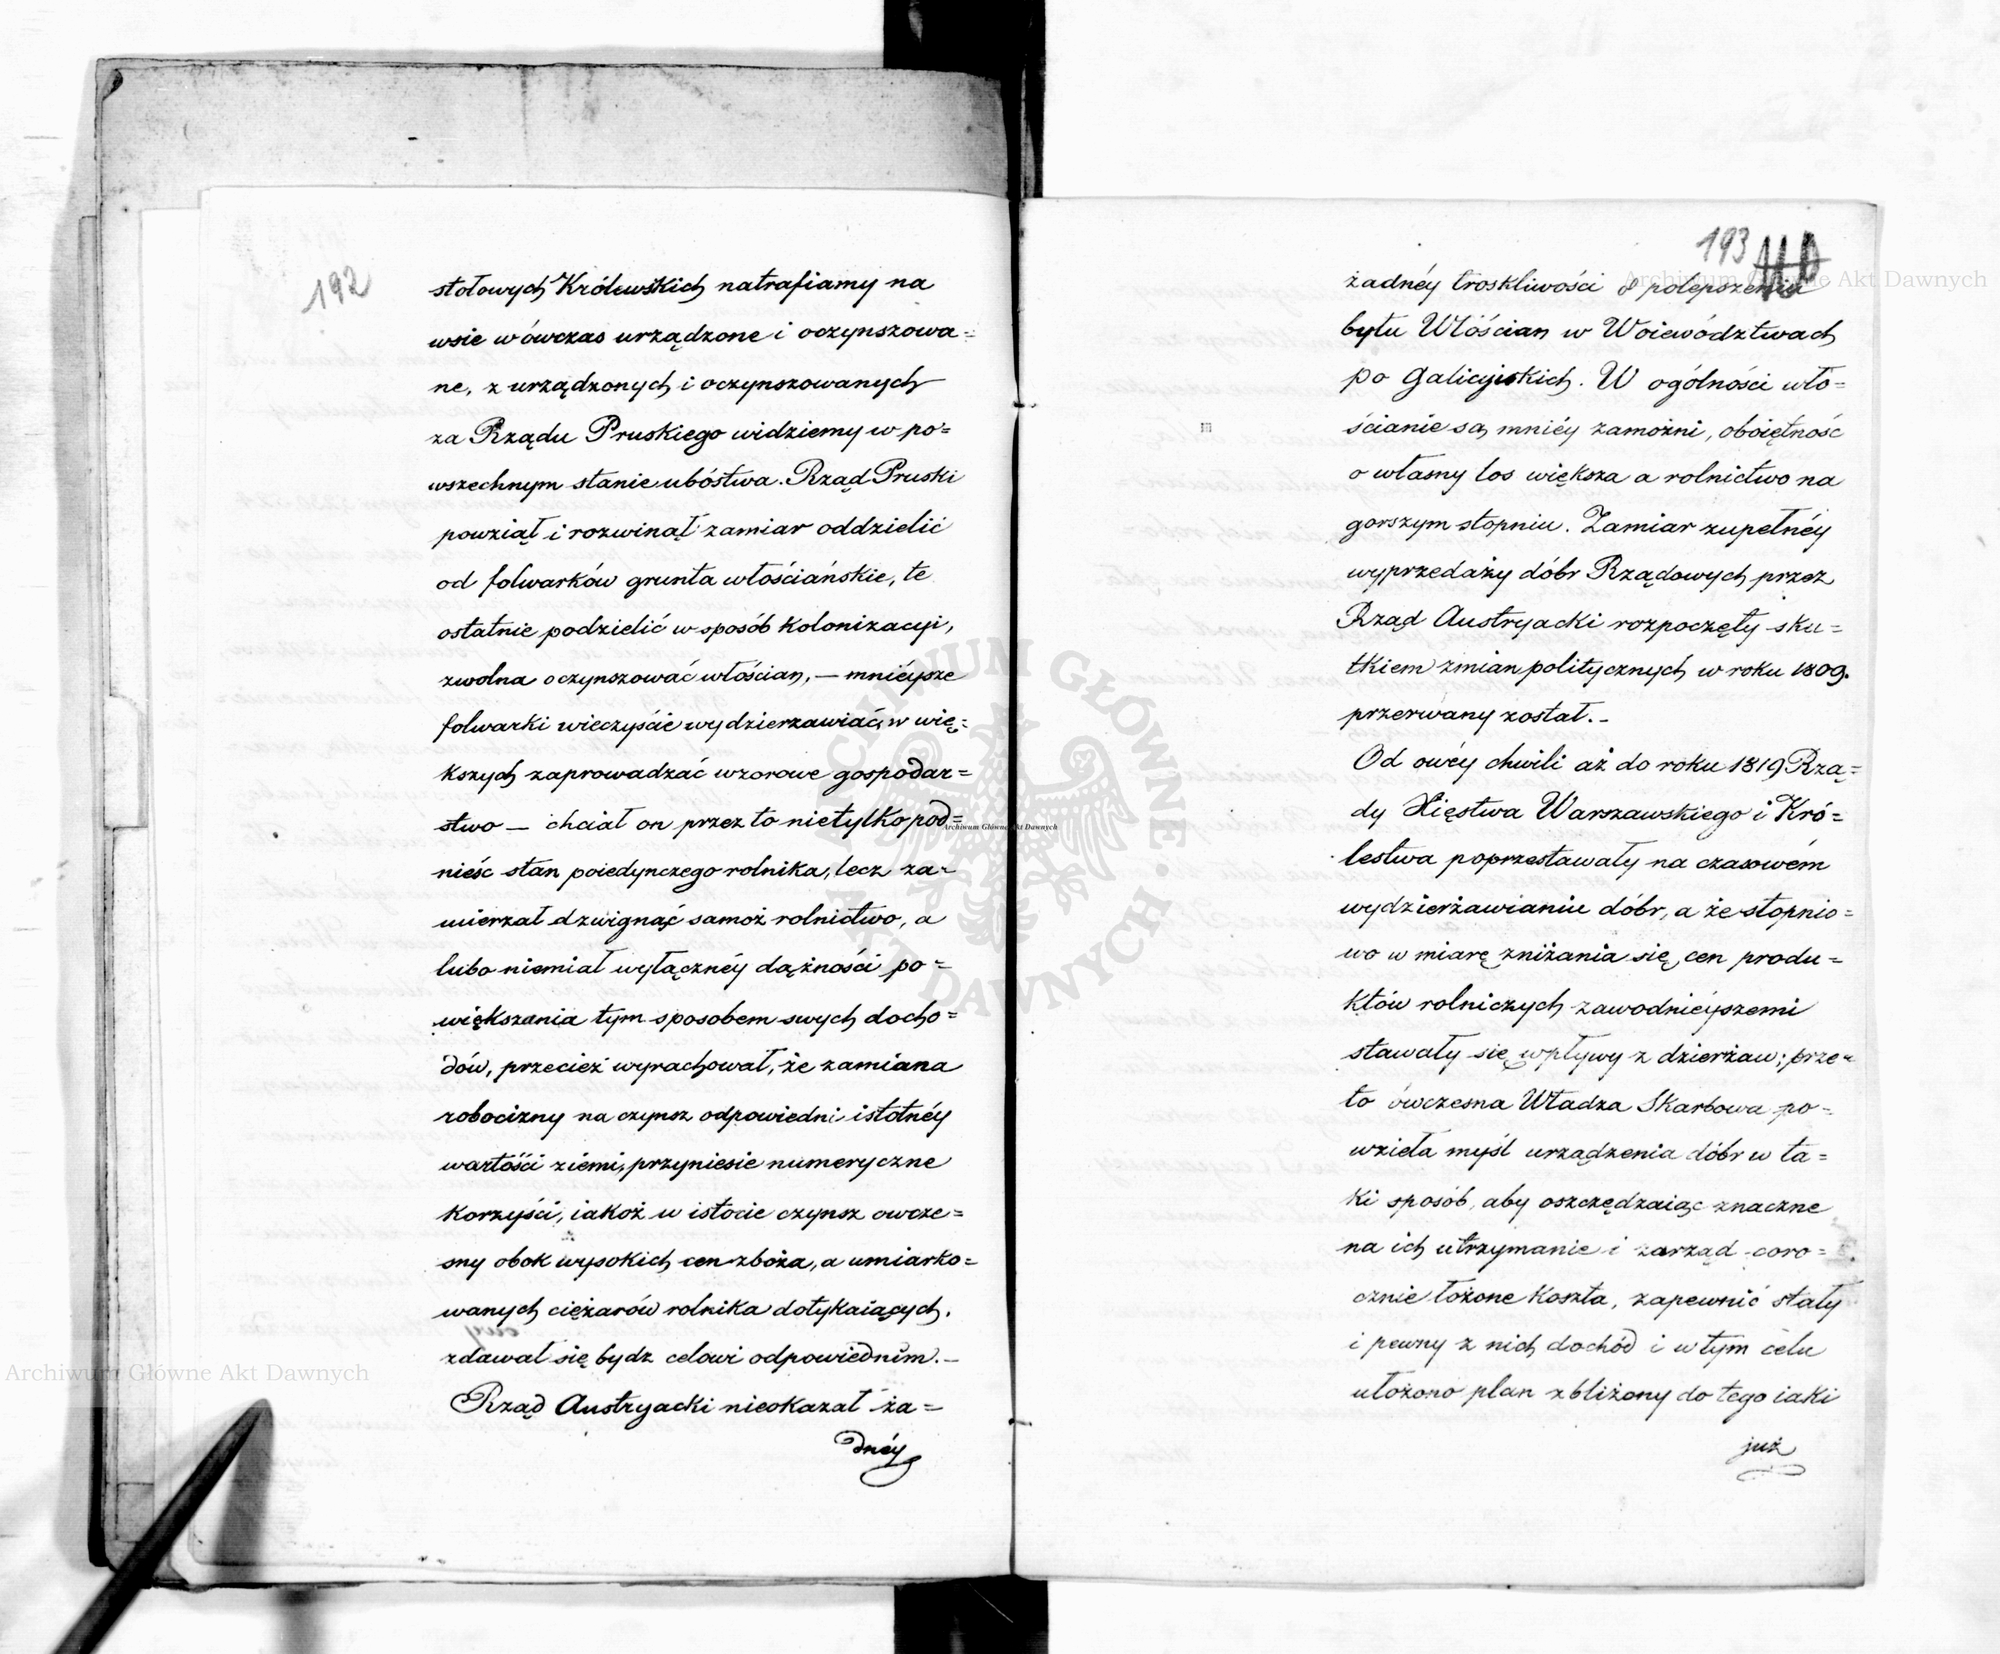 192
stołowych Królewskich natrafiamy na
wsie wówczas urządzone i oczynszowa=
ne, z urządzonych i oczynszowanych
za Rządu Pruskiego widziemy w po=
wszechnym stanie ubóstwa. Rząd Pruski
powziął i rozwinął zamiar oddzielić
od folwarków grunta włościańskie, te
ostatnie podzielić w sposób Kolonizacyi,
zwolna oczynszować włościan, — mniéysze
folwarki wieczyście wydzierzawiać, w wię=
kszych zaprowadzać wzorowe gospodar=
stwo — chciał on przez to nietylko pod=
nieść stan poiedynczego rolnika, lecz za=
mierzał dzwignąć samoż rolnictwo, a
lubo niemiał wyłącznéy dążności po=
większania tym sposobem swych docho=
dów, przecież wyrachował, że zamiana
robocizny na czynsz odpowiedni istotnéy
wartości ziemi, przyniesie numeryczne
Korzyści, iakoż w istocie czynsz owcze=
sny obok wysokich cen zboża, a umiarko=
wanych ciężarów rolnika dotykaiących.
zdawał się bydz celowi odpowiednim.—
Rząd Austryacki nieokazał ża=
dnéy
193
żadnéy troskliwości o polepszeniu
bytu Włościan w Woiewództwach
po Galicyiskich. W ogólności wło=
ścianie są mniéy zamożni, oboiętność
o własny los większa a rolnictwo na
gorszym stopniu. Zamiar zupełnéy
wyprzedaży dóbr Rządowych przez
Rząd Austryacki rozpoczęty sku=
tkiem zmian politycznych w roku 1809.
przerwany został.—
Od owéy chwili aż do roku 1819 Rzą=
dy Xięstwa Warszawskiego i Kró=
lestwa poprzestawały na czasowém
wydzierżawianiu dóbr, a że stopnio=
wo w miarę zniżania się cen produ=
któw rolniczych zawodnieyszemi
stawały się wpływy z dzierżaw; prze=
to ówczesna Władza Skarbowa po=
wzieła myśl urządzenia dóbr w ta=
ki sposób, aby oszczędzaiąc znaczne
na ich utrzymanie i zarząd coro=
cznie łożone koszta, zapewnić stały
i pewny z nich dochód i w tym celu
ułożono plan zbliżony do tego iaki
już
Archiwum Główne Akt Dawnych
Archiwum Główne Akt Dawnych
Archiwum Główne Akt Dawnych
ARCHIWUM GŁÓWNE AKT DAWNYCH